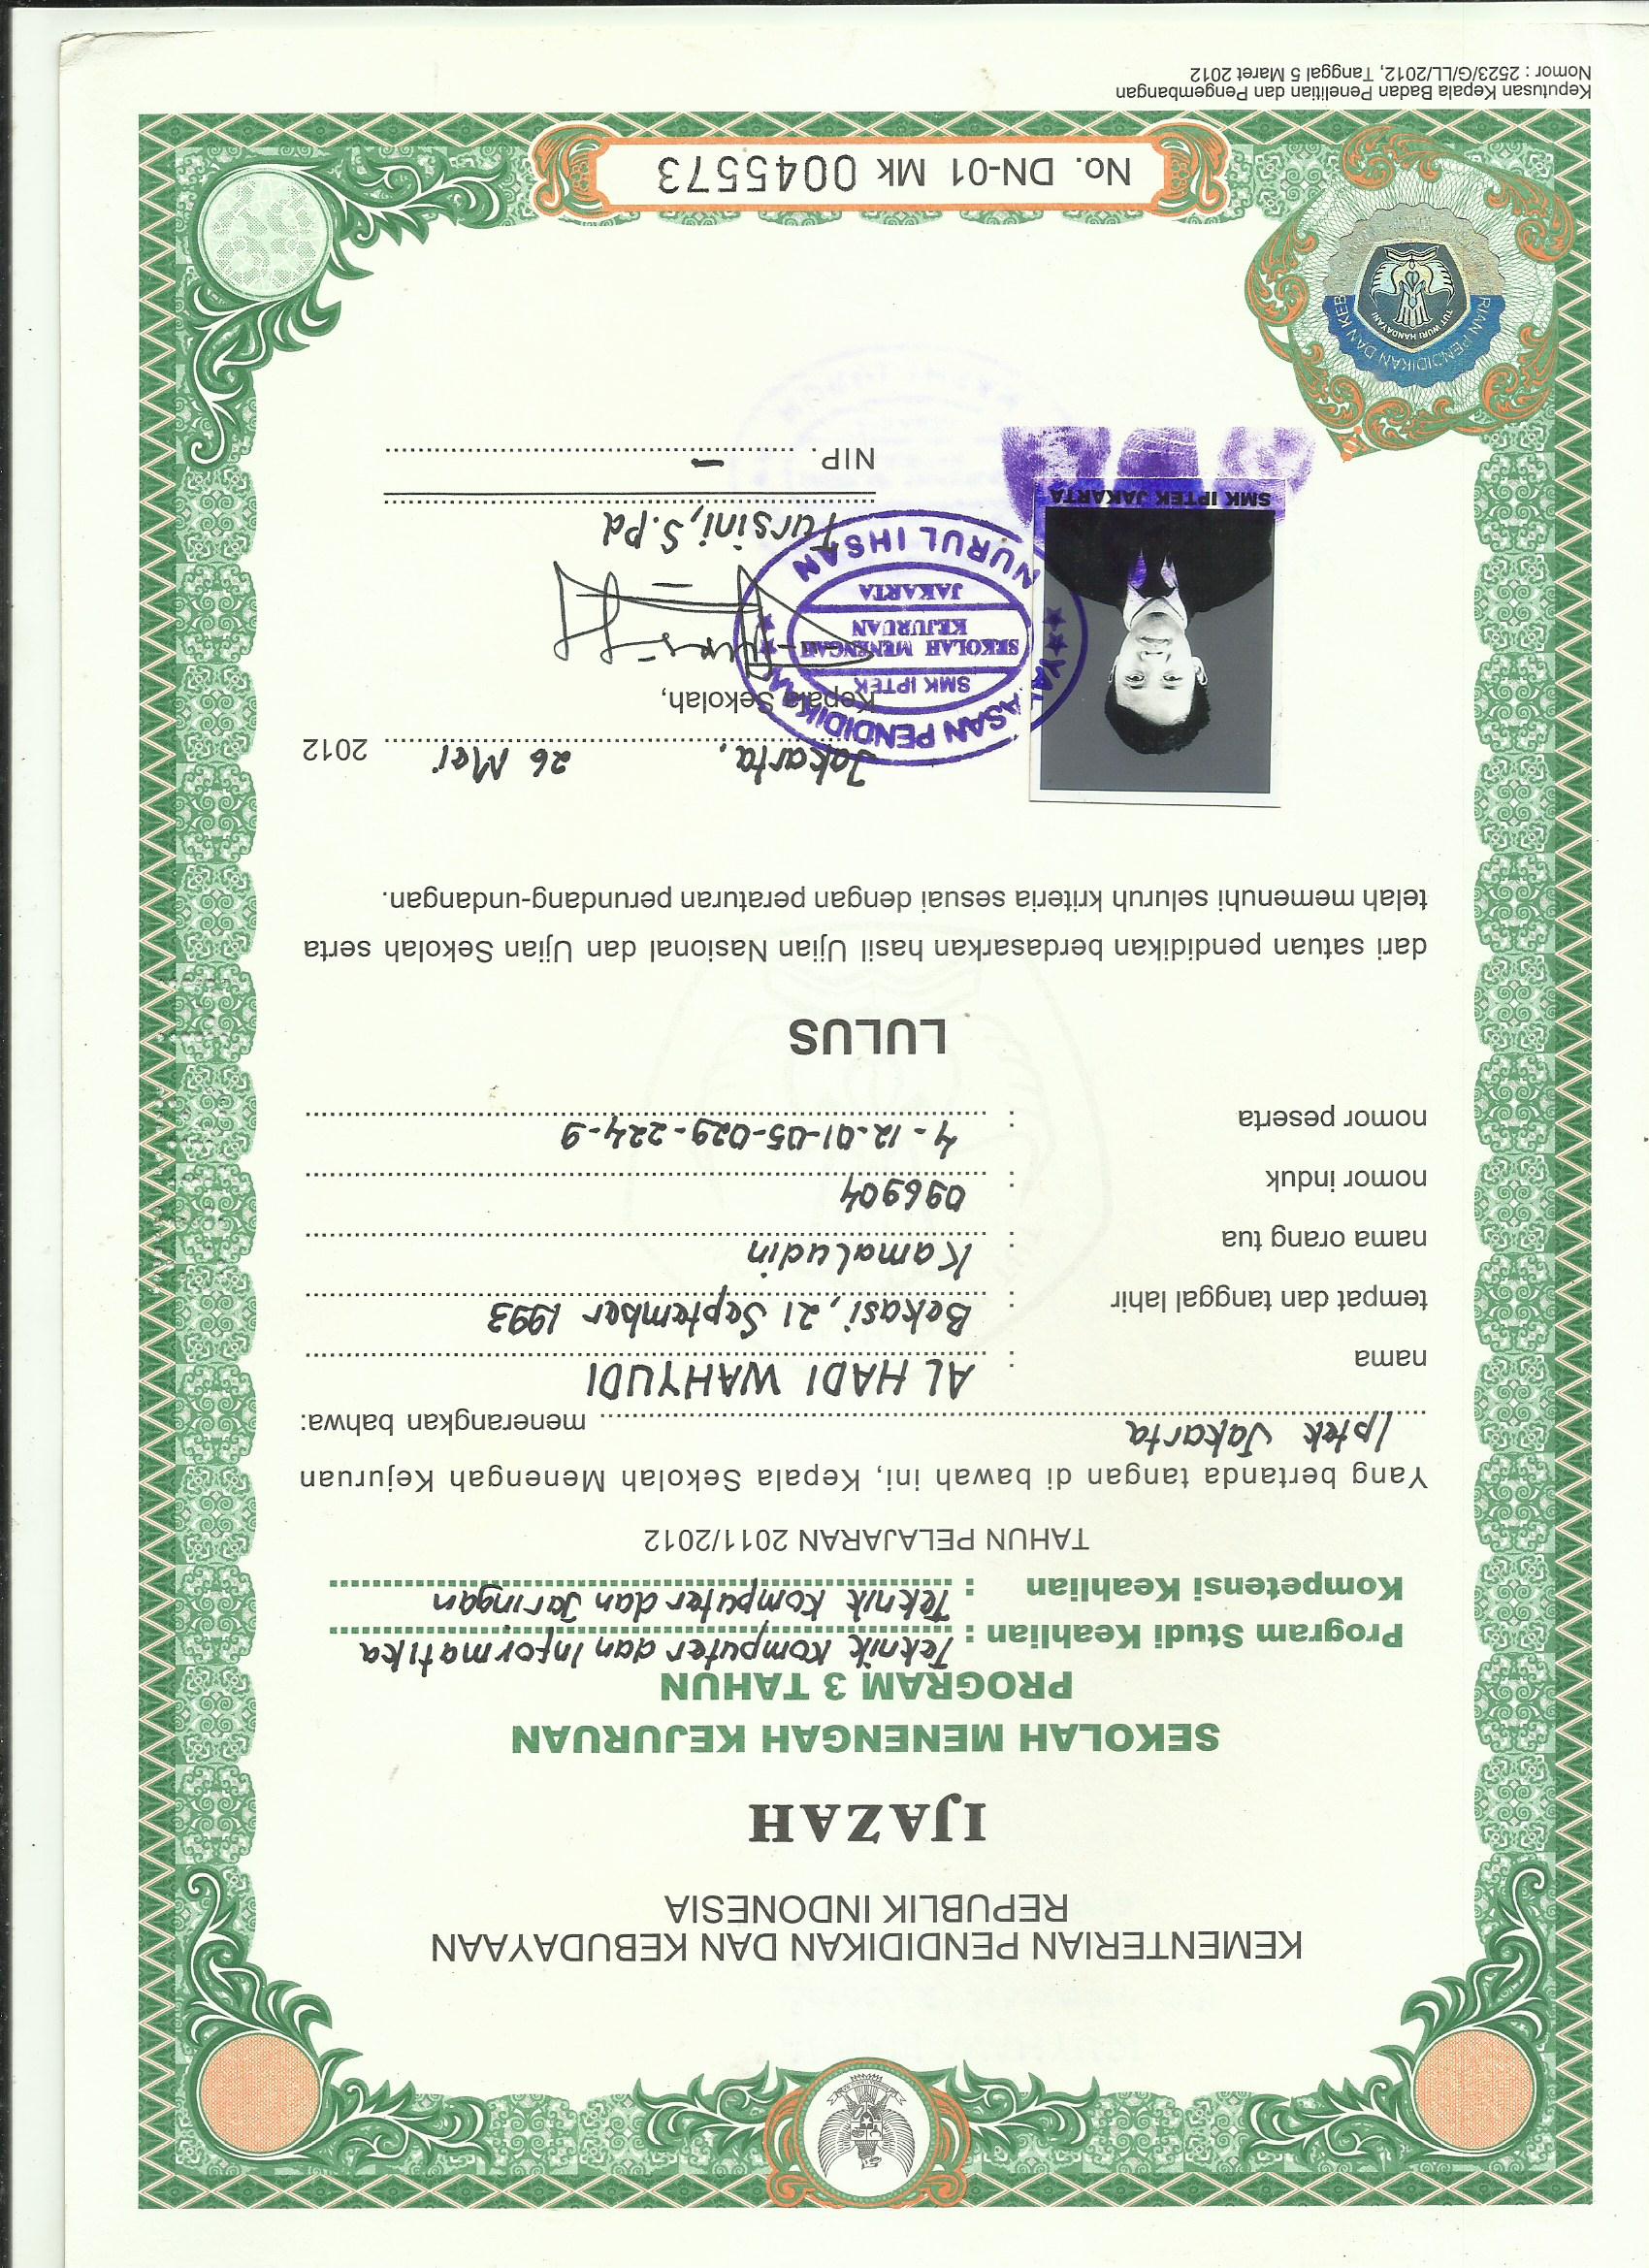 KEMENTERIAN PENDIDIKAN DAN KEBUDAYAAN
REPUBLIK INDONESIA
IJAZAH
SEKOLAH MENENGAH KEJURUAN
PROGRAM 3 TAHUN
Program Studi Keahlian : Teknik Komputer dan Informatika
Kompetensi Keahlian : Teknik Komputer dan Jaringan
TAHUN PELAJARAN 2011/2012
Yang bertanda tangan di bawah ini, Kepala Sekolah Menengah Kejuruan
Iptek Jakarta menerangkan bahwa:
nama : AL HADI WAHYUDI
tempat dan tanggal lahir : Bekasi, 21 September 1993
nama orang tua : Kamaludin
nomor induk : 096904
nomor peserta : 4-12-01-05-029-224-9
LULUS
dari satuan pendidikan berdasarkan hasil Ujian Nasional dan Ujian Sekolah serta
telah memenuhi seluruh kriteria sesuai dengan peraturan perundang-undangan.
Jakarta, 26 Mei 2012
Kepala Sekolah,
YAYASAN PENDIDIKAN
SMK IPTEK
SEKOLAH MENENGAH
KEJURUAN
JAKARTA
NURUL IHSAN
Tursini, S.Pd
NIP. -
SMK IPTEK JAKARTA
PENDIDIKAN DAN KEB
TUT WURI HANDAYANI
No. DN-01 Mk 0045573
Keputusan Kepala Badan Penelitian dan Pengembangan
Nomor : 2523/G/LL/2012, Tanggal 5 Maret 2012